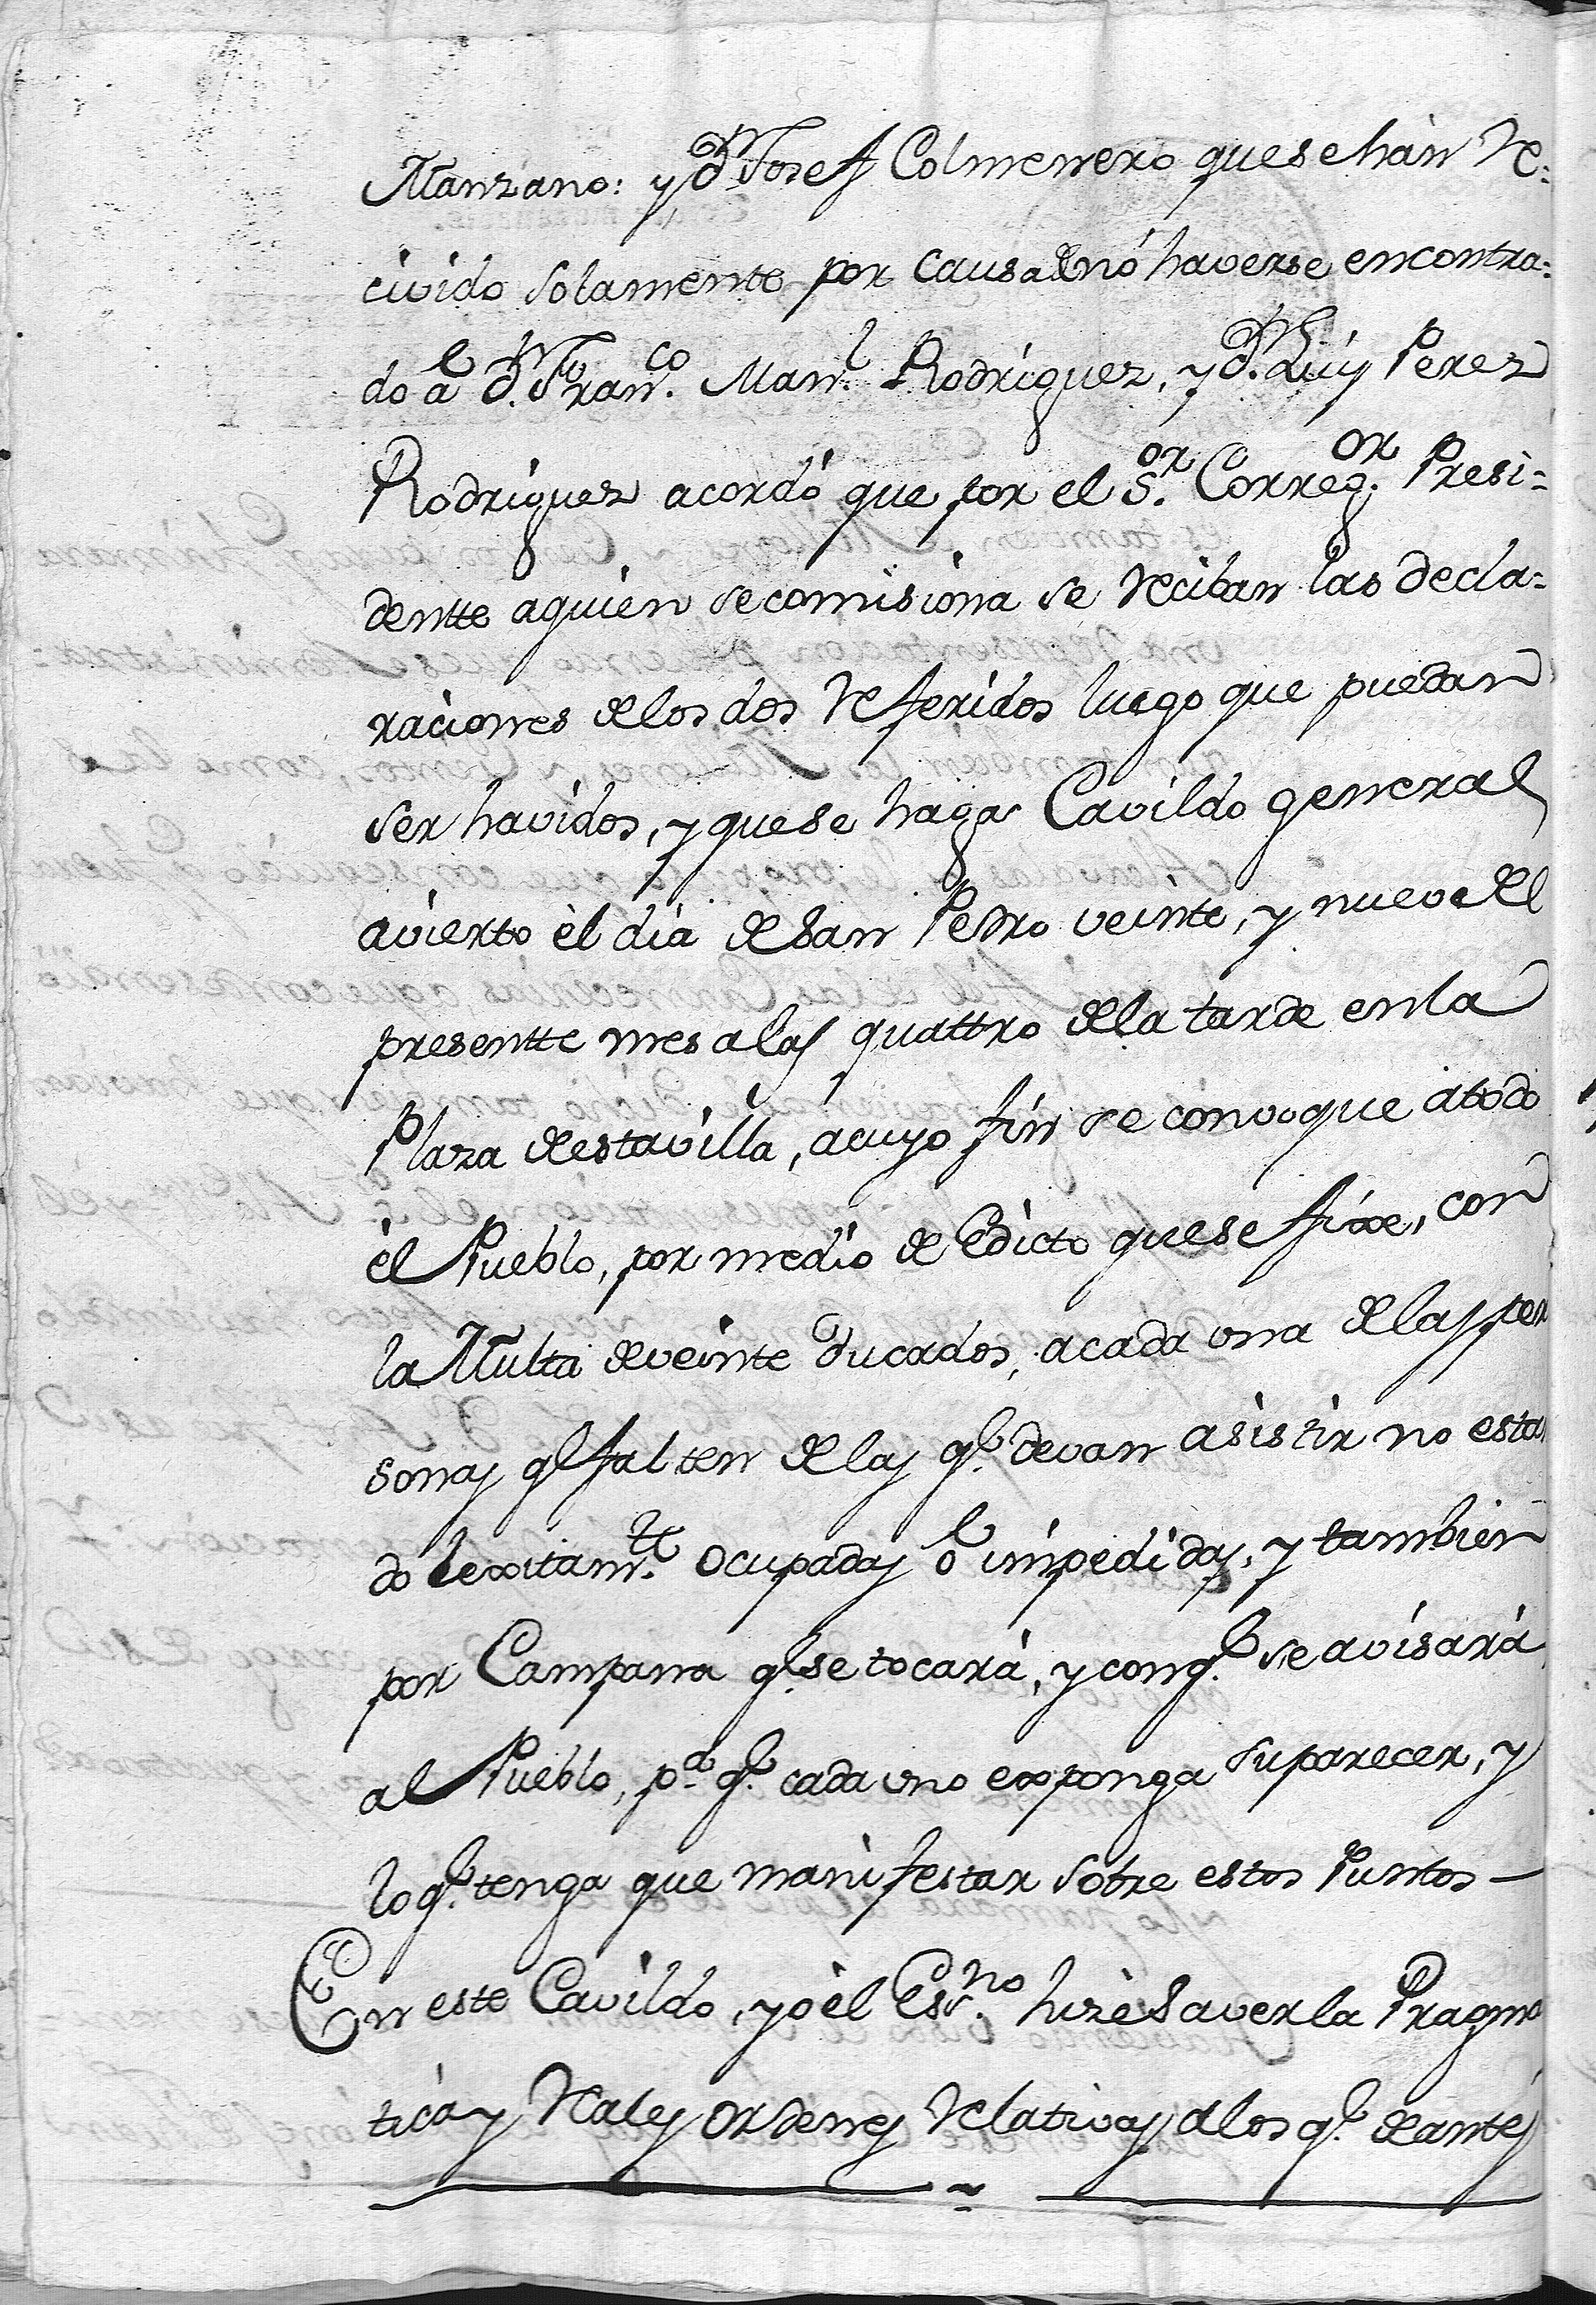 Manzano: y Dⁿ Josef Colmenero que se hán Re=
civido solamente por causa de nó haverse encontra=
do á Dⁿ Franᶜᵒ. Manˡ. Rodriguez, y Dⁿ. Luis Perez
Rodriguez acordó que por el Sᵒʳ. Corregᵒʳ. Presi=
dentte aquien se comisiona se Reciban las decla=
raciones de los dos Referidos luego que puedan
ser havidos, y que se haga Cavildo general
avierto èl dia de San Pedro veinte, y nueve del
presentte mes a las quattro de la tarde en la
Plaza de esta villa, a cuyo fin se convoque atodo
èl Pueblo, por medio de Edicto que se fixe, con
la Multa de veinte Ducados, a cada una de las per
sonas q.ᵉ falten de las q.ᵉ devan asistir no estan
do lexitamᵗᵉ. ocupadas ó impedidas, y tambien
por Campana q.ᵉ se tocará, y con q.ᵉ se avisará
al Pueblo, pᵃ q.ᵉ cada uno exponga su parecer, y
lo q.ᵉ tenga que manifestar sobre estos Puntos —
En este Cavildo, yo èl Esⁿᵒ. hize saver la Pragma
tica y Rales Ordenes Relativas a los q.ᵉ de antes